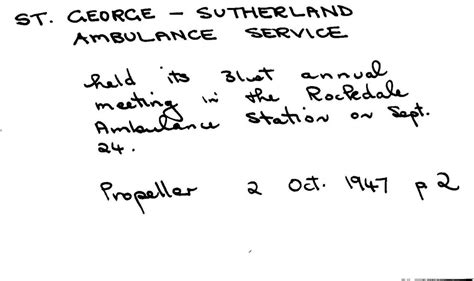 ST. GEORGE - SUTHERLAND
AMBULANCE SERVICE
held its 31st annual
meeting in the Rockdale
Ambulance Station on Sept.
24.
Propeller 2 Oct. 1947 p 2